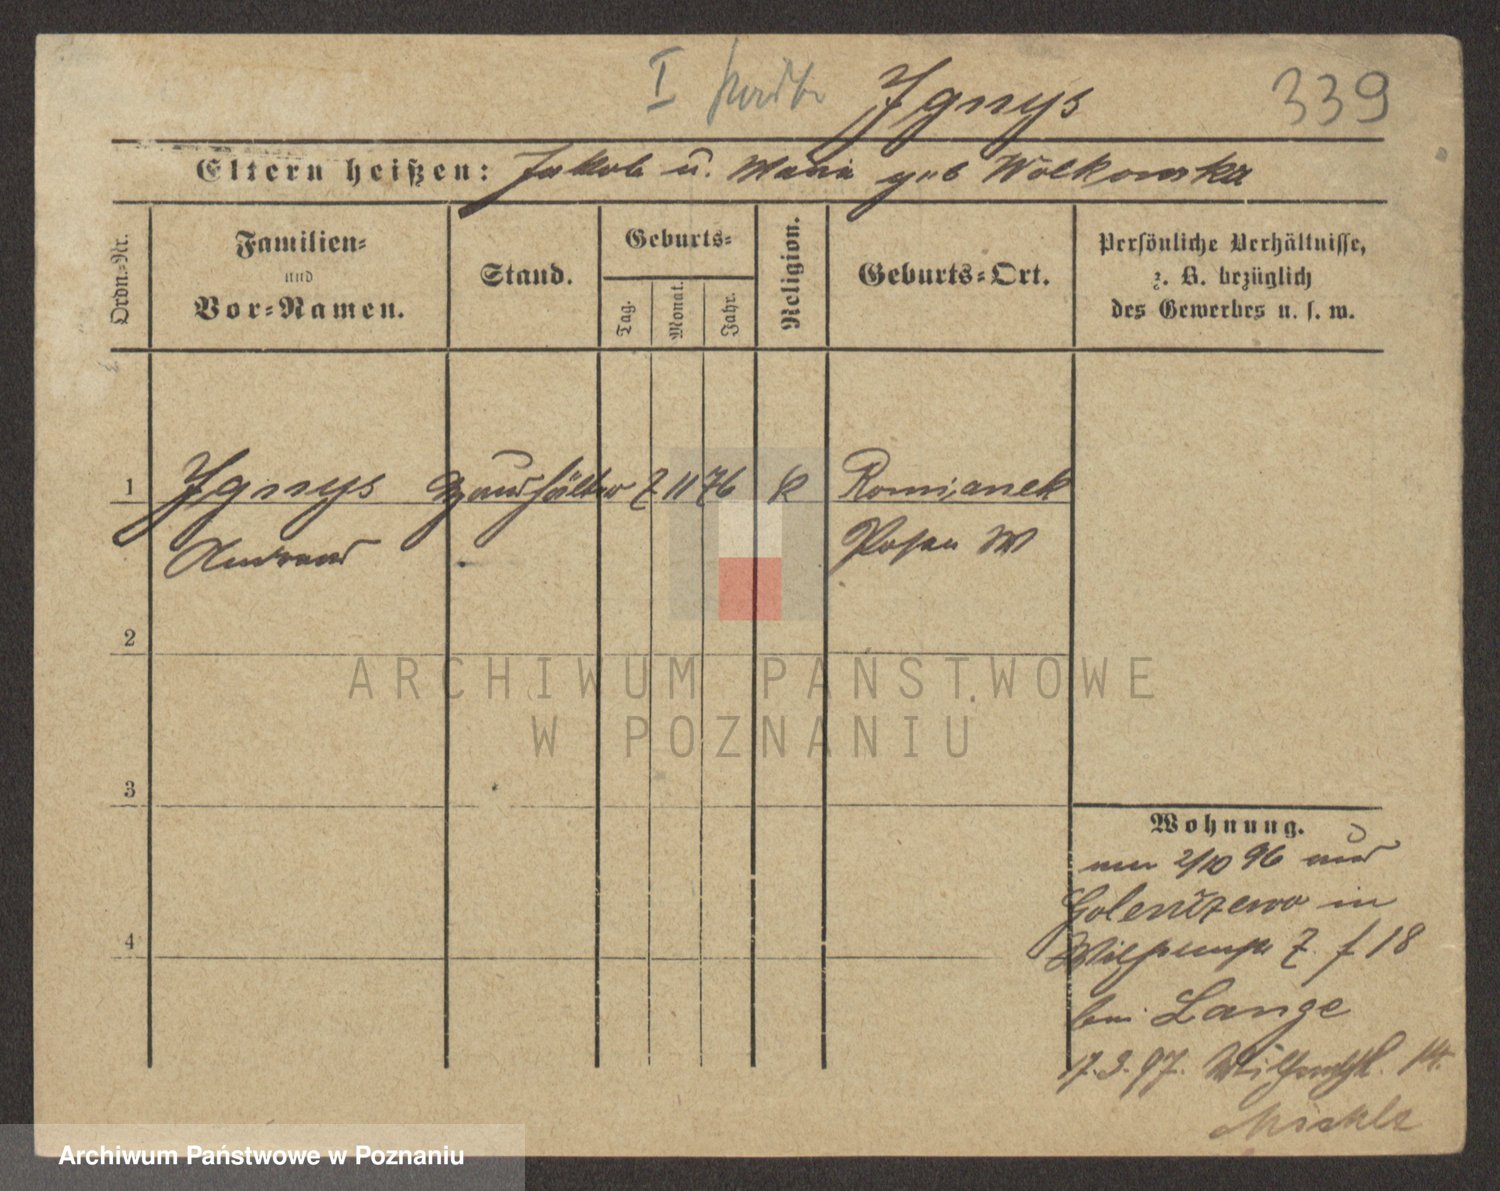 I Ignys 339
Eltern heißen: Jakob u. Maria geb Wolkowska
Ordn.-Nr.
Familien-
und
Vor-Namen.
Stand.
Geburts-
Tag.
Monat.
Jahr.
Religion.
Geburts-Ort.
Persönliche Verhältnisse,
z. B. bezüglich
des Gewerbes u. s. w.
1 Ignys Haushälter 2 11 76 K Romianek
Andreas Posen W
2
3
4
Wohnung.
2/10 96 aus
in
18
bei Lange
17.3.97.
ARCHIWUM PAŃSTWOWE
W POZNANIU
Archiwum Państwowe w Poznaniu